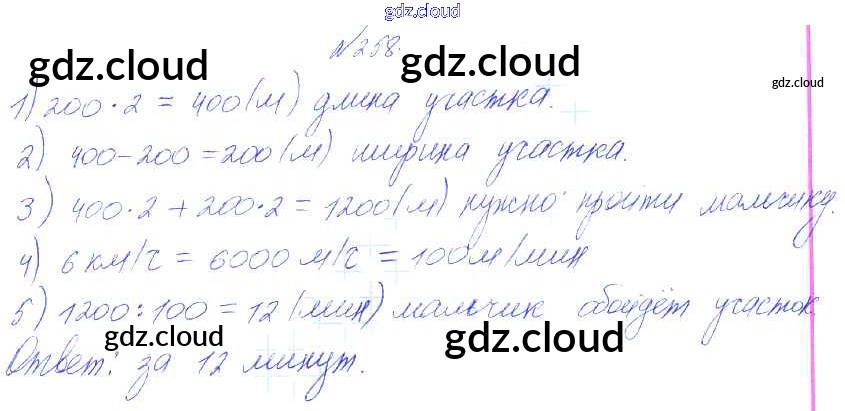 gdz.cloud
№258.
gdz.cloud gdz.cloud
gdz.cloud
1) 200·2 = 400 (м) длина участка.
2) 400-200 = 200 (м) ширина участка.
3) 400·2 + 200·2 = 1200 (м) нужно пройти мальчику.
4) 6 км/г = 6000 м/г = 100 м/мин
5) 1200:100 = 12 (мин) мальчик обойдёт участок.
gdz.cloud gdz.cloud
Ответ: за 12 минут.